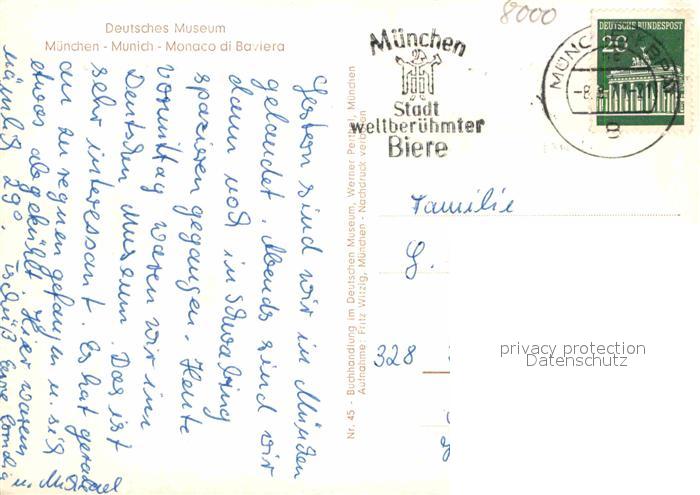 Deutsches Museum
München - Munich - Monaco di Baviera
8000
München
Stadt
weltberühmter
Biere
DEUTSCHE BUNDESPOST
20
MÜNCHEN
8
Gestern sind wir in München
gelandet. Abends sind wir
dann noch in Schwabing
spazieren gegangen. Heute
vormittag waren wir im
Deutschen Museum. Das ist
sehr interessant. Es hat gerade
an zu regnen gefangen u. sich
etwas abgekühlt. Hier waren
nämlich 29°. Tschüß Eure
u. Michael
Nr. 45 - Buchhandlung im Deutschen Museum, Werner Perthel, München
Aufnahme: Fritz Witzig, München - Nachdruck verboten
Familie
G.
328
privacy protection
Datenschutz